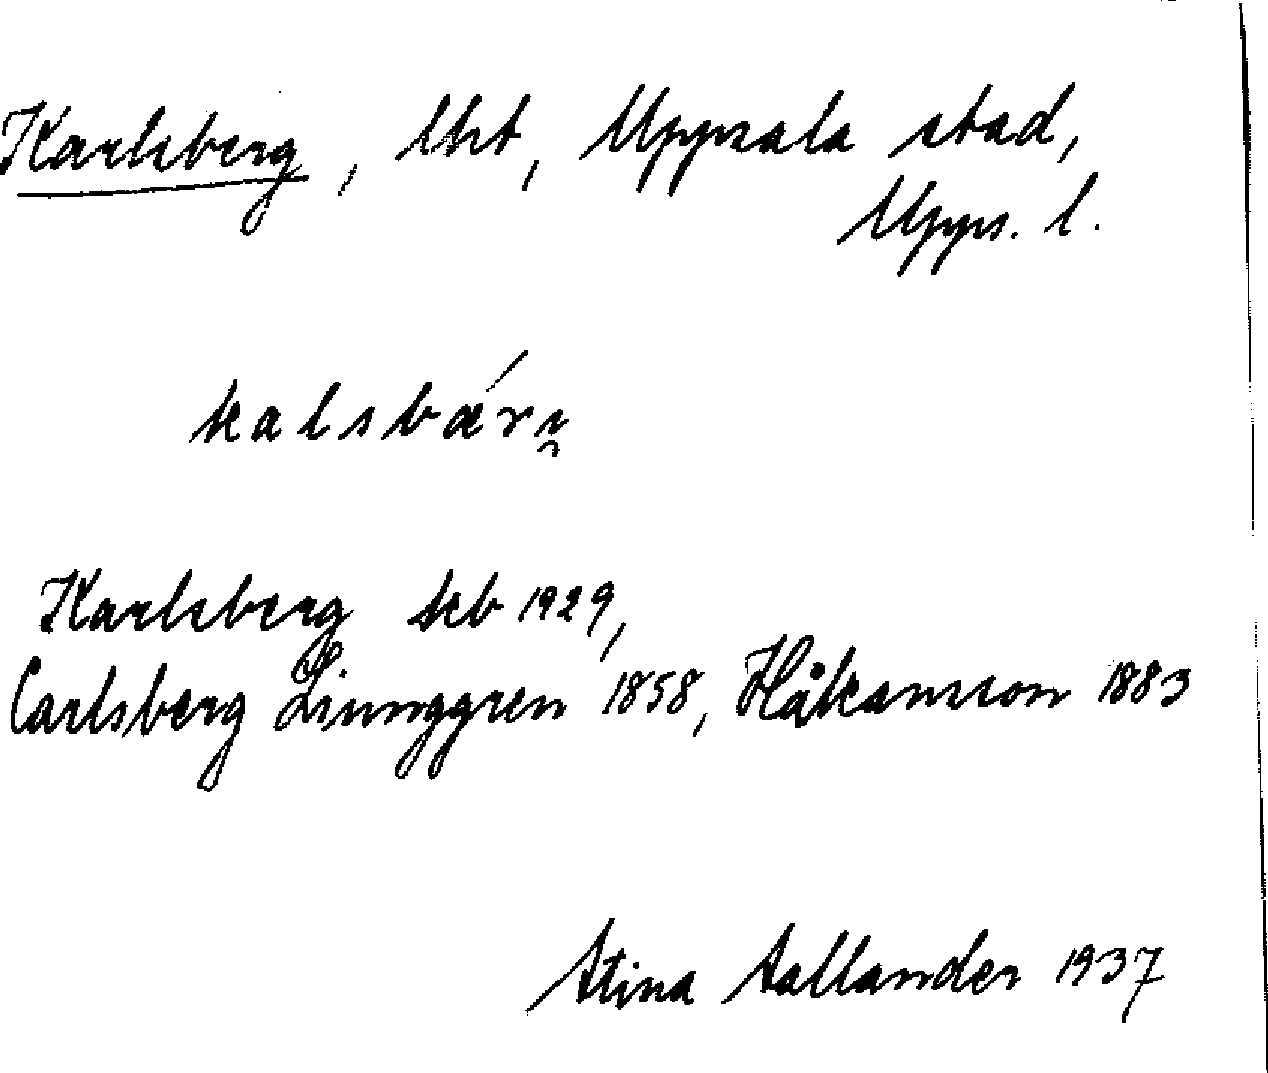 Karlsberg, lht, Uppsala stad,
Upps. l.
kalsbǽrı̯
Karlsberg kb 1929,
Carlsberg Ljunggren 1858, Håkansson 1883
Stina Sallander 1937